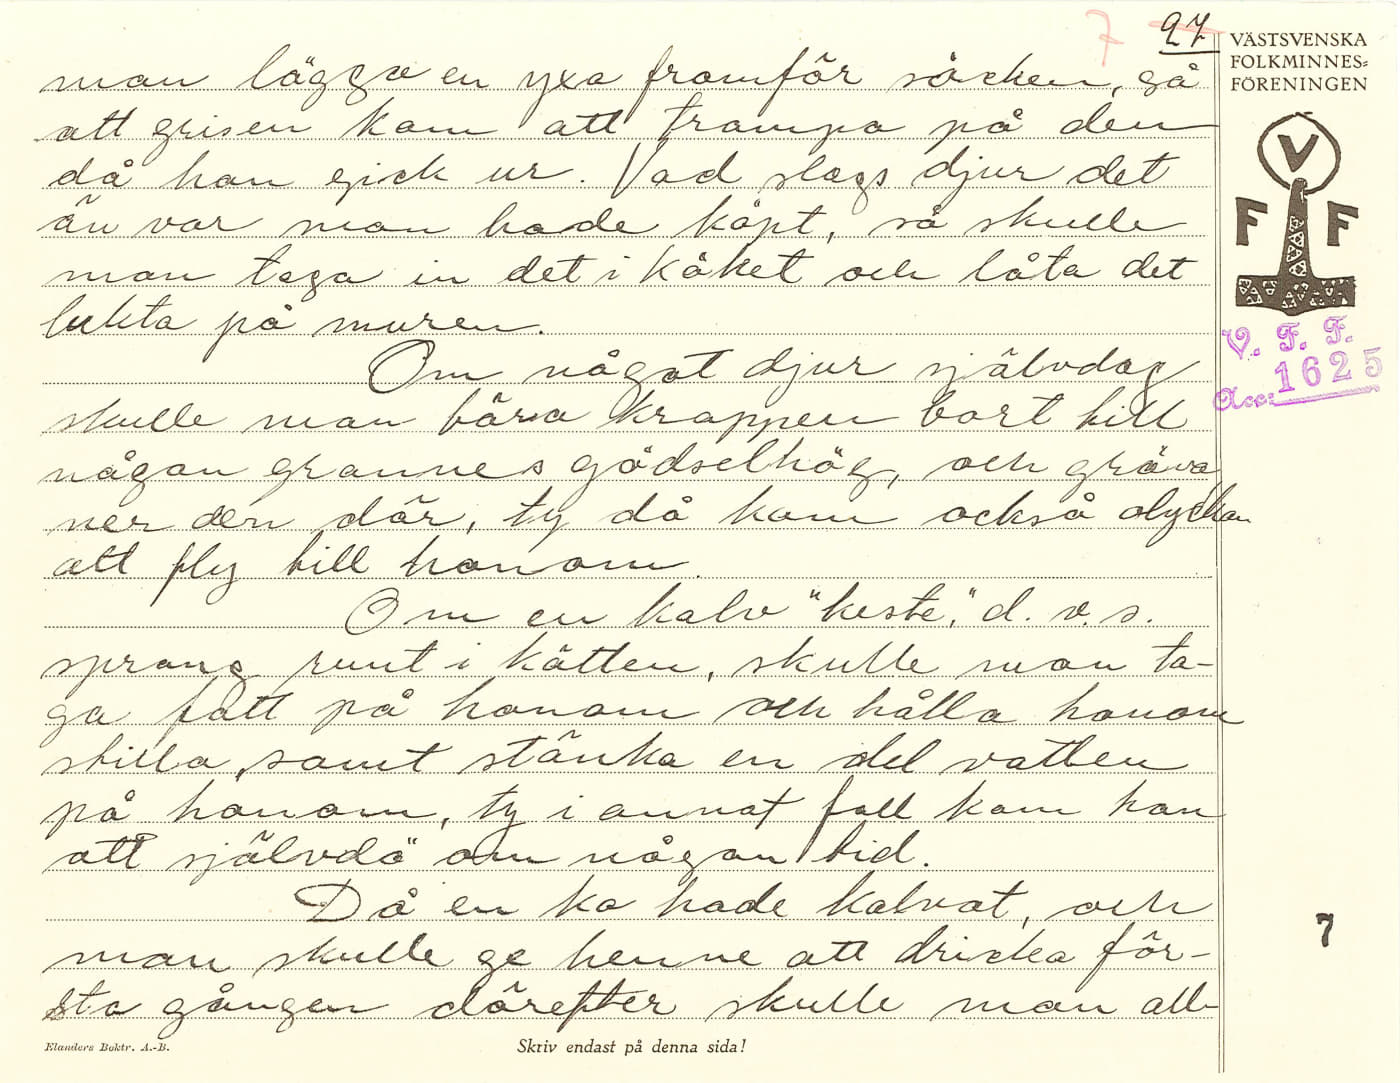 7 27
VÄSTSVENSKA
FOLKMINNES=
FÖRENINGEN
V
F F
V. F. F.
Acc: 1625
man lägga en yxa framför säcken, så
att grisen kom att trampa på den
då han gick ur. Vad slags djur det
än var man hade köpt, så skulle
man taga in det i köket och låta det
lukta på muren.
Om något djur självdog
skulle man bära kroppen bort till
någon grannes gödselhög, och gräva
ner den där, ty då kom också olyckan
att fly till honom.
Om en kalv "keste", d. v. s.
sprang runt i kätten, skulle man ta-
ga fatt på honom och hålla honom
stilla, samt stänka en del vatten
på honom, ty i annat fall kom han
att självdö om någon tid.
Då en ko hade kalvat, och
man skulle ge henne att dricka för-
sta gången därefter skulle man all-
7
Elanders Boktr. A.-B.
Skriv endast på denna sida!